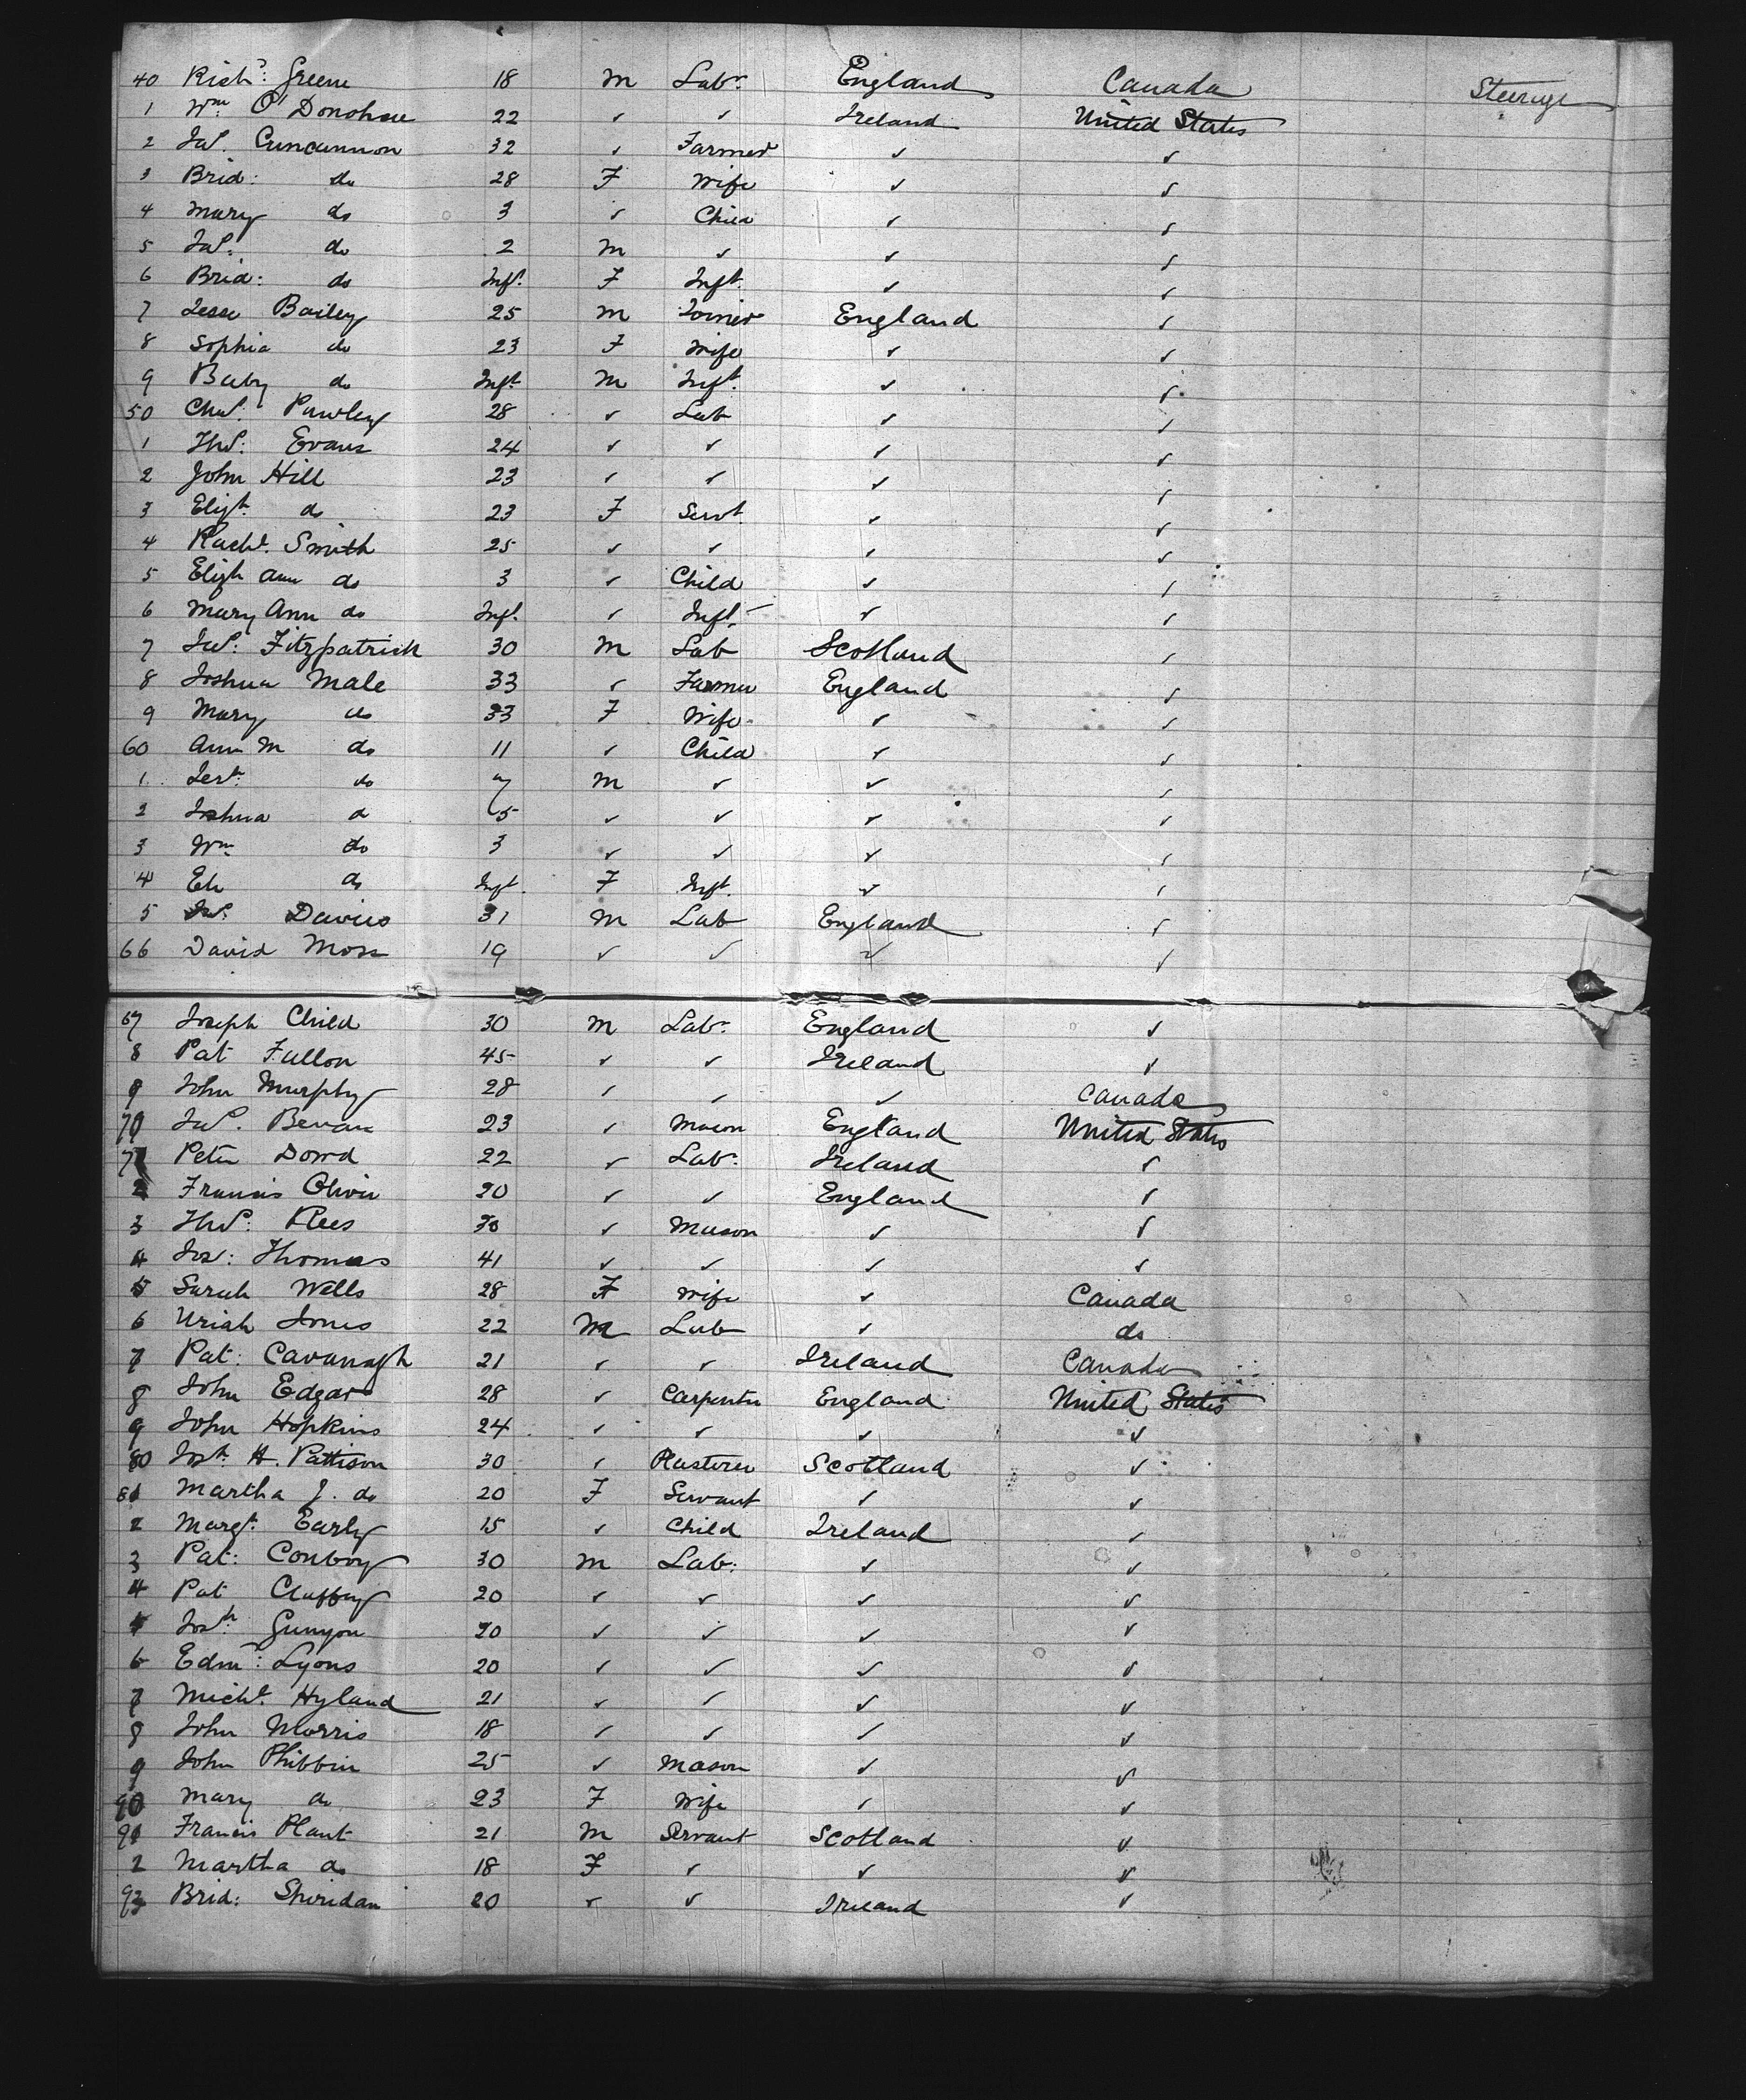 40 Richd: Greene 18 M Labr. England Canada Steerage
1 Wm: O'Donohue 22 ✓ ✓ Ireland United States
2 Jas. Cuncannon 32 ✓ Farmer ✓ ✓
3 Brid: do 28 F Wife ✓ ✓
4 Mary do 3 ✓ Child ✓ ✓
5 Jas: do 2 M ✓ ✓ ✓
6 Brid: do Inft. F Inft. ✓ ✓
7 Jesse Bailey 25 M Joiner England ✓
8 Sophia do 23 F Wife ✓ ✓
9 Baby do Inft. M Inft. ✓ ✓
50 Chas. Pawley 28 ✓ Lab ✓ ✓
1 Thos: Evans 24 ✓ ✓ ✓ ✓
2 John Hill 23 ✓ ✓ ✓ ✓
3 Elizt. do 23 F Servt. ✓ ✓
4 Rachl. Smith 25 ✓ ✓ ✓ ✓
5 Elizh Ann do 3 ✓ Child ✓ ✓
6 Mary Ann do Inft. ✓ Inft. ✓ ✓
7 Jas: Fitzpatrick 30 M Lab Scotland ✓
8 Joshua Male 33 ✓ Farmer England ✓
9 Mary do 33 F Wife ✓ ✓
60 Ann M do 11 ✓ Child ✓ ✓
1 do 7 M ✓ ✓ ✓
2 Joshua do 5 ✓ ✓ ✓ ✓
3 Wm do 3 ✓ ✓ ✓ ✓
4 do Inft. F Inft. ✓ ✓
5 Davies 31 M Lab England ✓
66 David Moss 19 ✓ ✓ ✓ ✓
67 Joseph Child 30 M Labr. England ✓
8 Pat Fallon 45 ✓ ✓ Ireland ✓
9 John Murphy 28 ✓ ✓ ✓ Canada
70 Jas. Bevan 23 ✓ Mason England United States
71 Peter Dowd 22 ✓ Lab: Ireland ✓
2 Francis Oliver 20 ✓ ✓ England ✓
3 Thos: Rees 30 ✓ Mason ✓ ✓
4 Jos: Thomas 41 ✓ ✓ ✓ ✓
5 Sarah Wells 28 F Wife ✓ Canada
6 Uriah Jones 22 M Lab ✓ do
7 Pat: Cavanagh 21 ✓ ✓ Ireland Canada
8 John Edgar 28 ✓ Carpenter England United States
9 John Hopkins 24 ✓ ✓ ✓ ✓
80 Josh. H. Pattison 30 ✓ Plasterer Scotland ✓
81 Martha J. do 20 F Servant ✓ ✓
2 Margt. Early 15 ✓ Child Ireland ✓
3 Pat: Conboy 30 M Lab: ✓ ✓
4 Pat Claffey 20 ✓ ✓ ✓ ✓
Josh. Gunyon 20 ✓ ✓ ✓ ✓
6 Edmd: Lyons 20 ✓ ✓ ✓ ✓
7 Michl. Hyland 21 ✓ ✓ ✓ ✓
8 John Morris 18 ✓ ✓ ✓ ✓
9 John Phibbin 25 ✓ Mason ✓ ✓
90 Mary do 23 F Wife ✓ ✓
91 Francis Plant 21 M Servant Scotland ✓
2 Martha do 18 F ✓ ✓ ✓
93 Brid: Shiridan 20 ✓ ✓ Ireland ✓